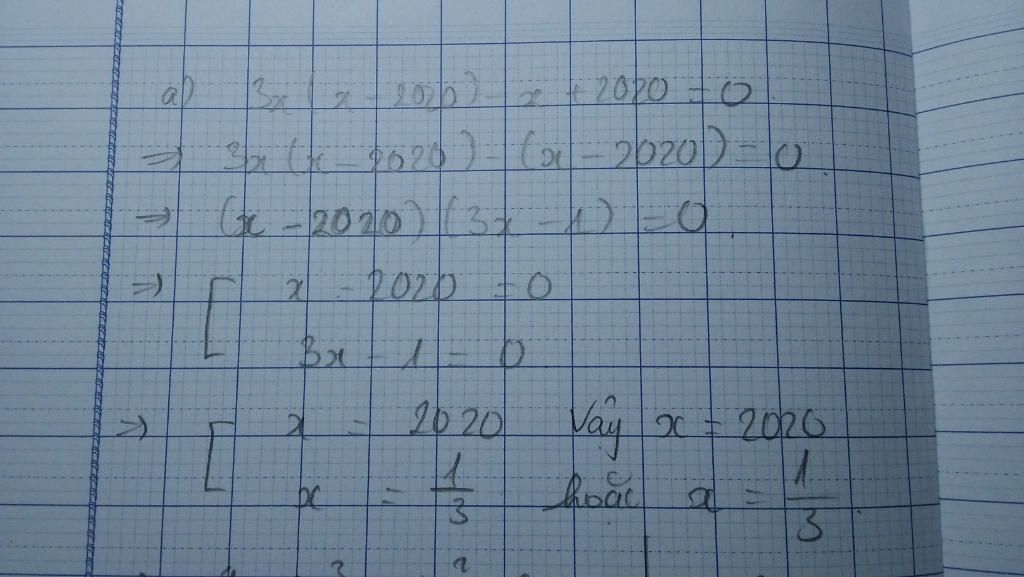 a) 3x(x - 2020) - x + 2020 = 0
=> 3x(x - 2020) - (x - 2020) = 0.
=> (x - 2020)(3x - 1) = 0.
=> [ x - 2020 = 0
3x - 1 = 0
=> [ x = 2020 Vậy x = 2020
x = 1/3 hoặc x = 1/3.